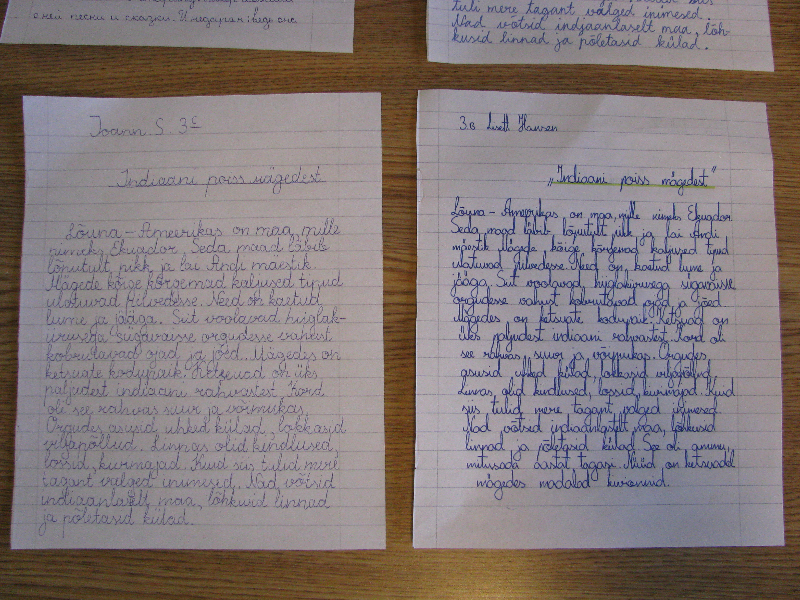 оней песни и сказки.
tuli mere tagant valged inimesed.
Nad võtsid indjaanlaselt maa, lõh-
kusid linnad ja põletasid külad.
Joann S. 3c
Indiaani poiss mägedest
Lõuna-Ameerikas on maa, mille
nimeks Ekuador. Seda maad läbib
lõputult pikk ja lai Andi mäestik.
Mägede kõige kõrgemad kaljused tipud
ulatuvad pilvedesse. Need on kaetud
lume ja jääga. Siit voolavad hiiglak-
urusega sügavaisse orgudesse vahest
kobrutavad ojad ja jõed. Mägedes on
ketsuate kodupaik. Ketsuad on üks
paljudest indiaani rahvastest. Kord
oli see rahvas suur ja võimukas.
Orgudes asusid uhked külad, lokkasid
viljapõllud. Linnas olid kindlused,
lossid, kurmajad. Kuid siis tulid mere
tagant valged inimesed. Nad võtsid
indiaanlaselt maa, lõhkusid linnad
ja põletasid külad.
3.B Lisett Hansen
"Indiaani poiss mägedest"
Lõuna-Ameerikas, on maa, mille nimeks Ekuador.
Seda maad läbib lõputult pikk ja lai Andi
mäestik. Mägede kõige kõrgemad kaljused tipud
ulatuvad pilvedesse. Need on kaetud lume ja
jääga. Siit voolavad hiiglakiirusega sügavaisse
orgudesse vahust kobrutavad ojad ja jõed.
Mägedes on ketsuate kodupaik. Ketsuad on
üks paljudest indiaani rahvastest. Kord oli
see rahvas, suur ja võimukas. Orgudes,
asusid uhked külad lokkasid viljapõllud.
Linnas, olid kindlused, lossid, kurmajad. Kuid
siis tulid mere tagant valged inimesed.
Nad võtsid indiaanlastelt maa, lõhkusid
linnad ja põletasid külad. See oli ammu,
mitusada aastat tagasi. Nüüd on ketsuadel
mägedes madalad